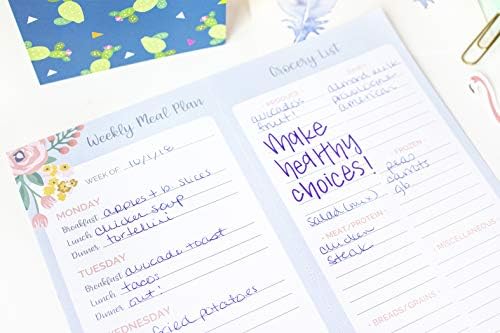 Weekly Meal Plan
WEEK OF 10/1/18
MONDAY
Breakfast apples + b. slices
Lunch chicken soup
Dinner tortellini
TUESDAY
Breakfast avocado toast
Lunch tacos
Dinner out!
WEDNESDAY
fried potatoes
Grocery List
PRODUCE
avocados
fruit!
DAIRY
almond milk
provologne
american
make
healthy
choices!
salad (mix)
FROZEN
peas
carrots
gb
MEAT/PROTEIN
chicken
steak
MISCELLANEOUS
BREADS/GRAINS